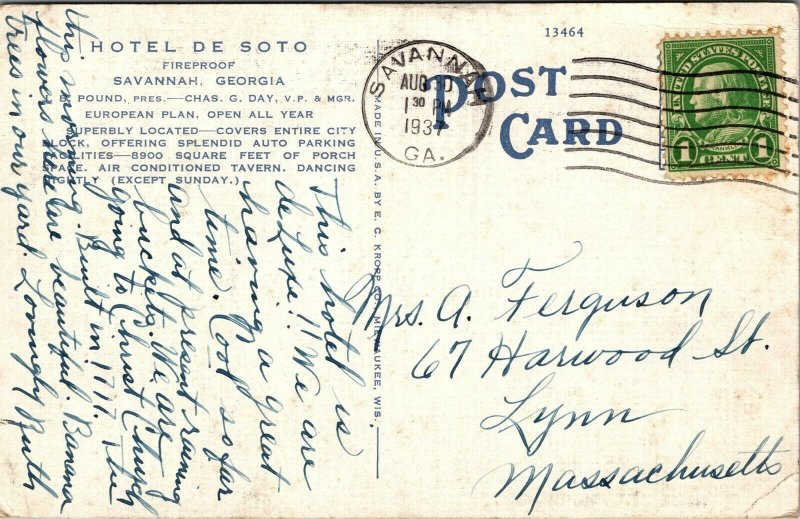 13464
HOTEL DE SOTO
FIREPROOF
SAVANNAH, GEORGIA
POUND, PRES.—CHAS. G. DAY, V.P. & MGR.
EUROPEAN PLAN, OPEN ALL YEAR
SUPERBLY LOCATED—COVERS ENTIRE CITY
BLOCK, OFFERING SPLENDID AUTO PARKING
FACILITIES—8900 SQUARE FEET OF PORCH
SPACE. AIR CONDITIONED TAVERN. DANCING
NIGHTLY (EXCEPT SUNDAY.)
This hotel is
de Luxe!! We are
having a great
time. Cool so far
and at present raining
buckets. We are
going to Christ Church
this morning. Built in 1717. The
flowers here are beautiful. Banana
trees in our yard. Lovingly Ruth
MADE IN U.S.A. BY E. C. KROPP CO., MILWAUKEE, WIS.
POST
CARD
SAVANNAH
AUG 30
1 30 PM
1937
GA.
UNITED STATES POSTAGE
FRANKLIN
1 CENT 1
Mrs. A. Ferguson
67 Harwood St.
Lynn
Massachusetts